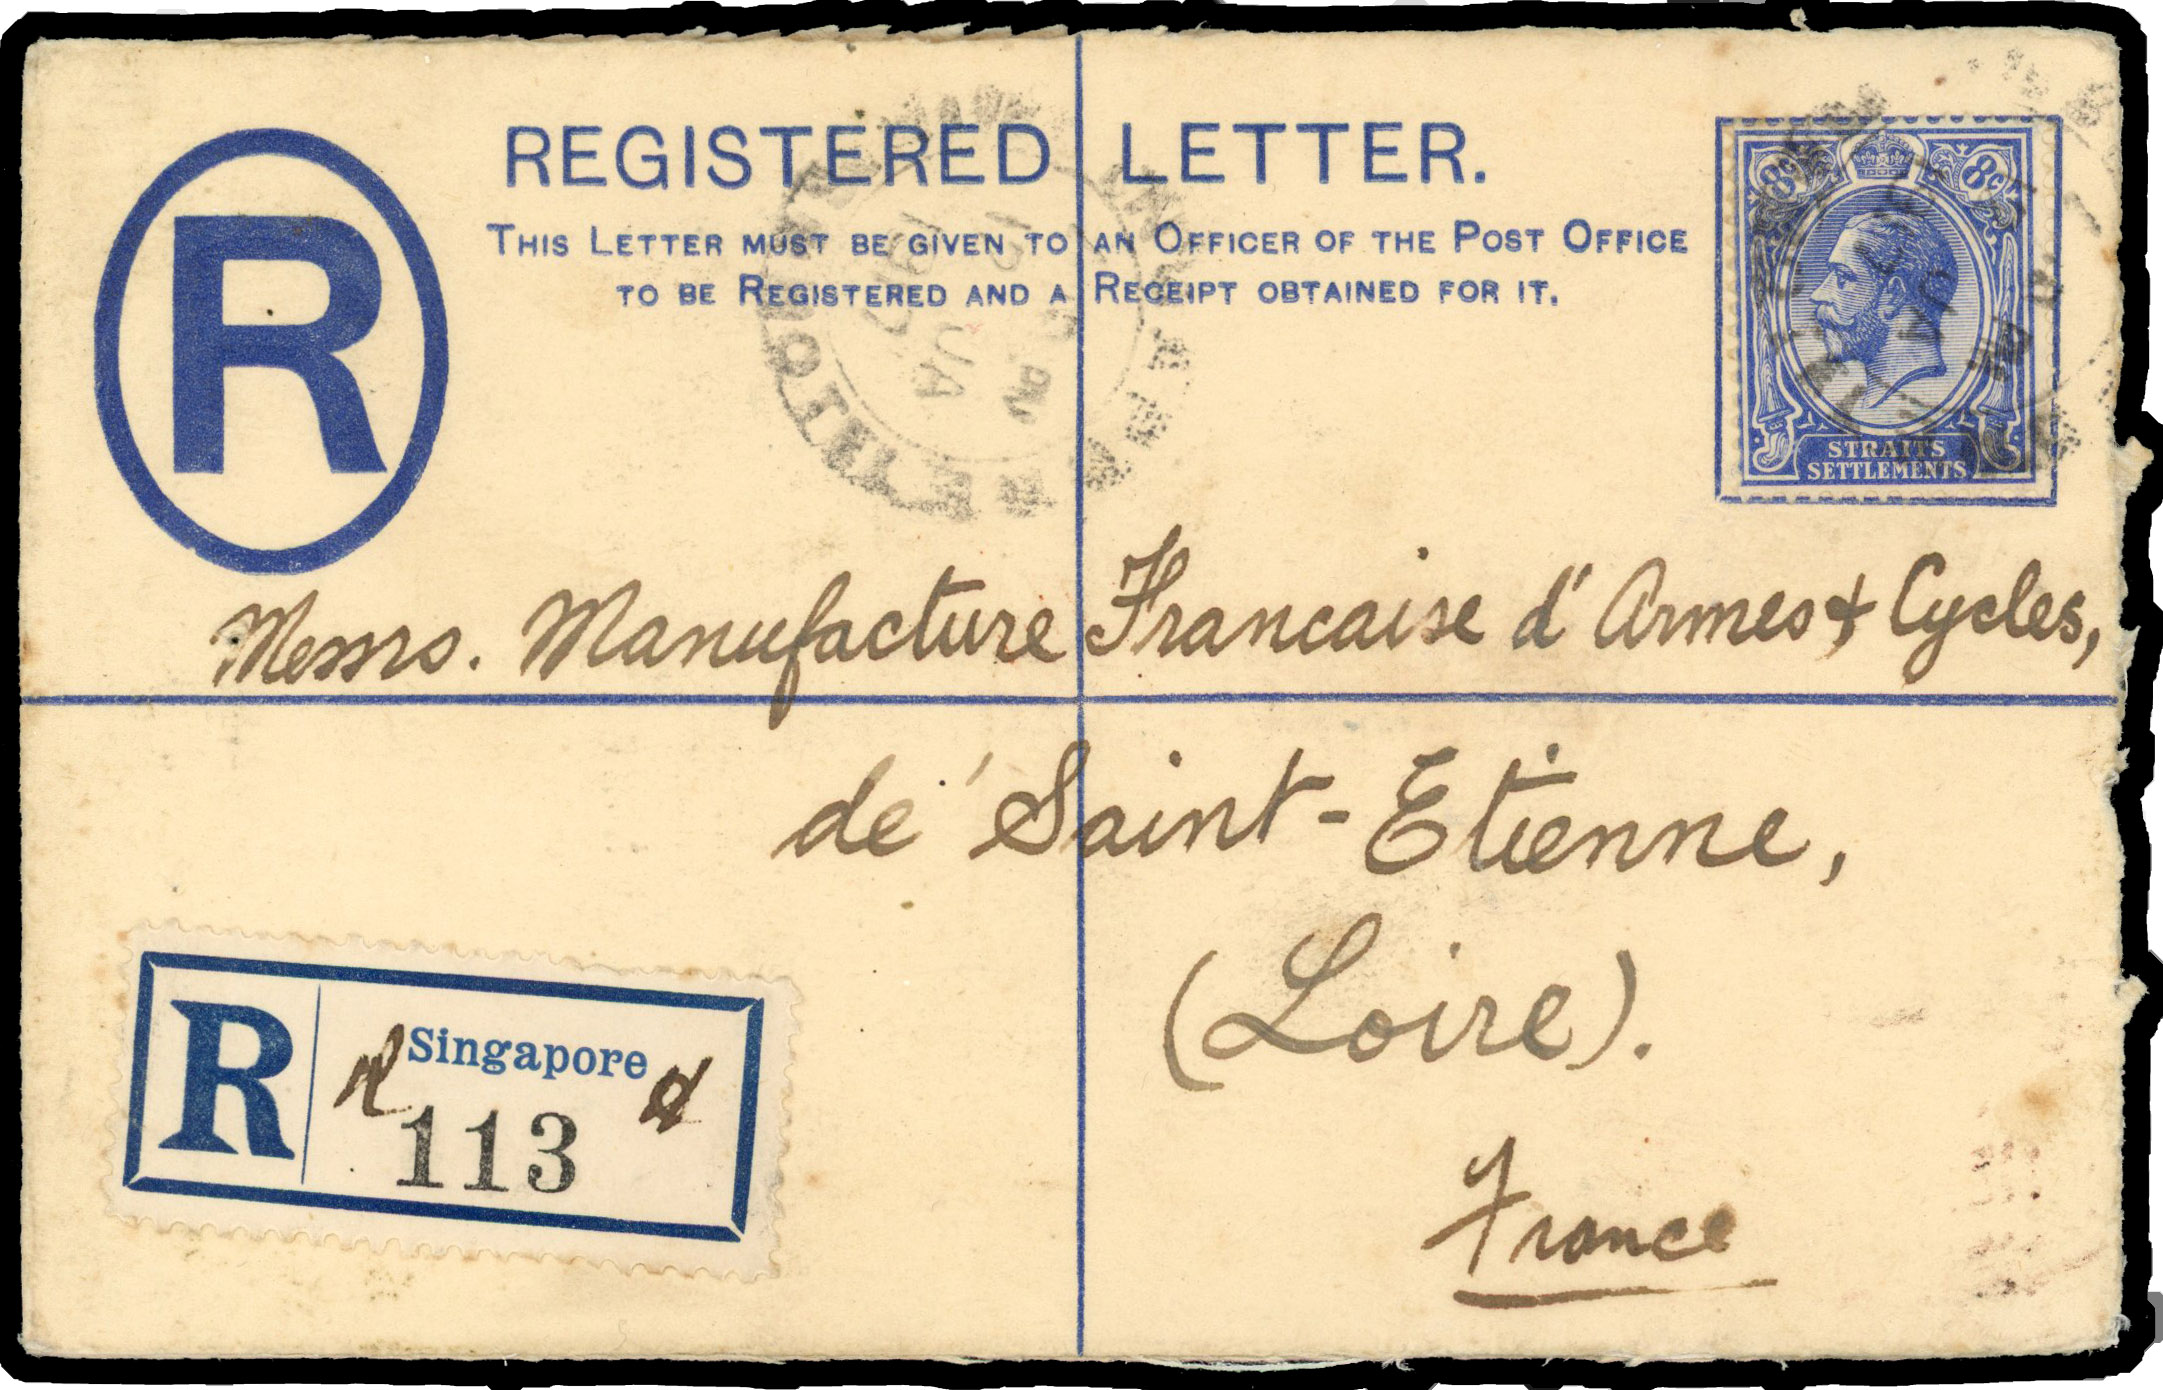 R
REGISTERED LETTER.
THIS LETTER MUST BE GIVEN TO AN OFFICER OF THE POST OFFICE
TO BE REGISTERED AND A RECEIPT OBTAINED FOR IT.
8c 8c
STRAITS
SETTLEMENTS
Messrs. Manufacture Francaise d'Armes & Cycles,
de Saint-Etienne,
(Loire).
France
R
Singapore
113